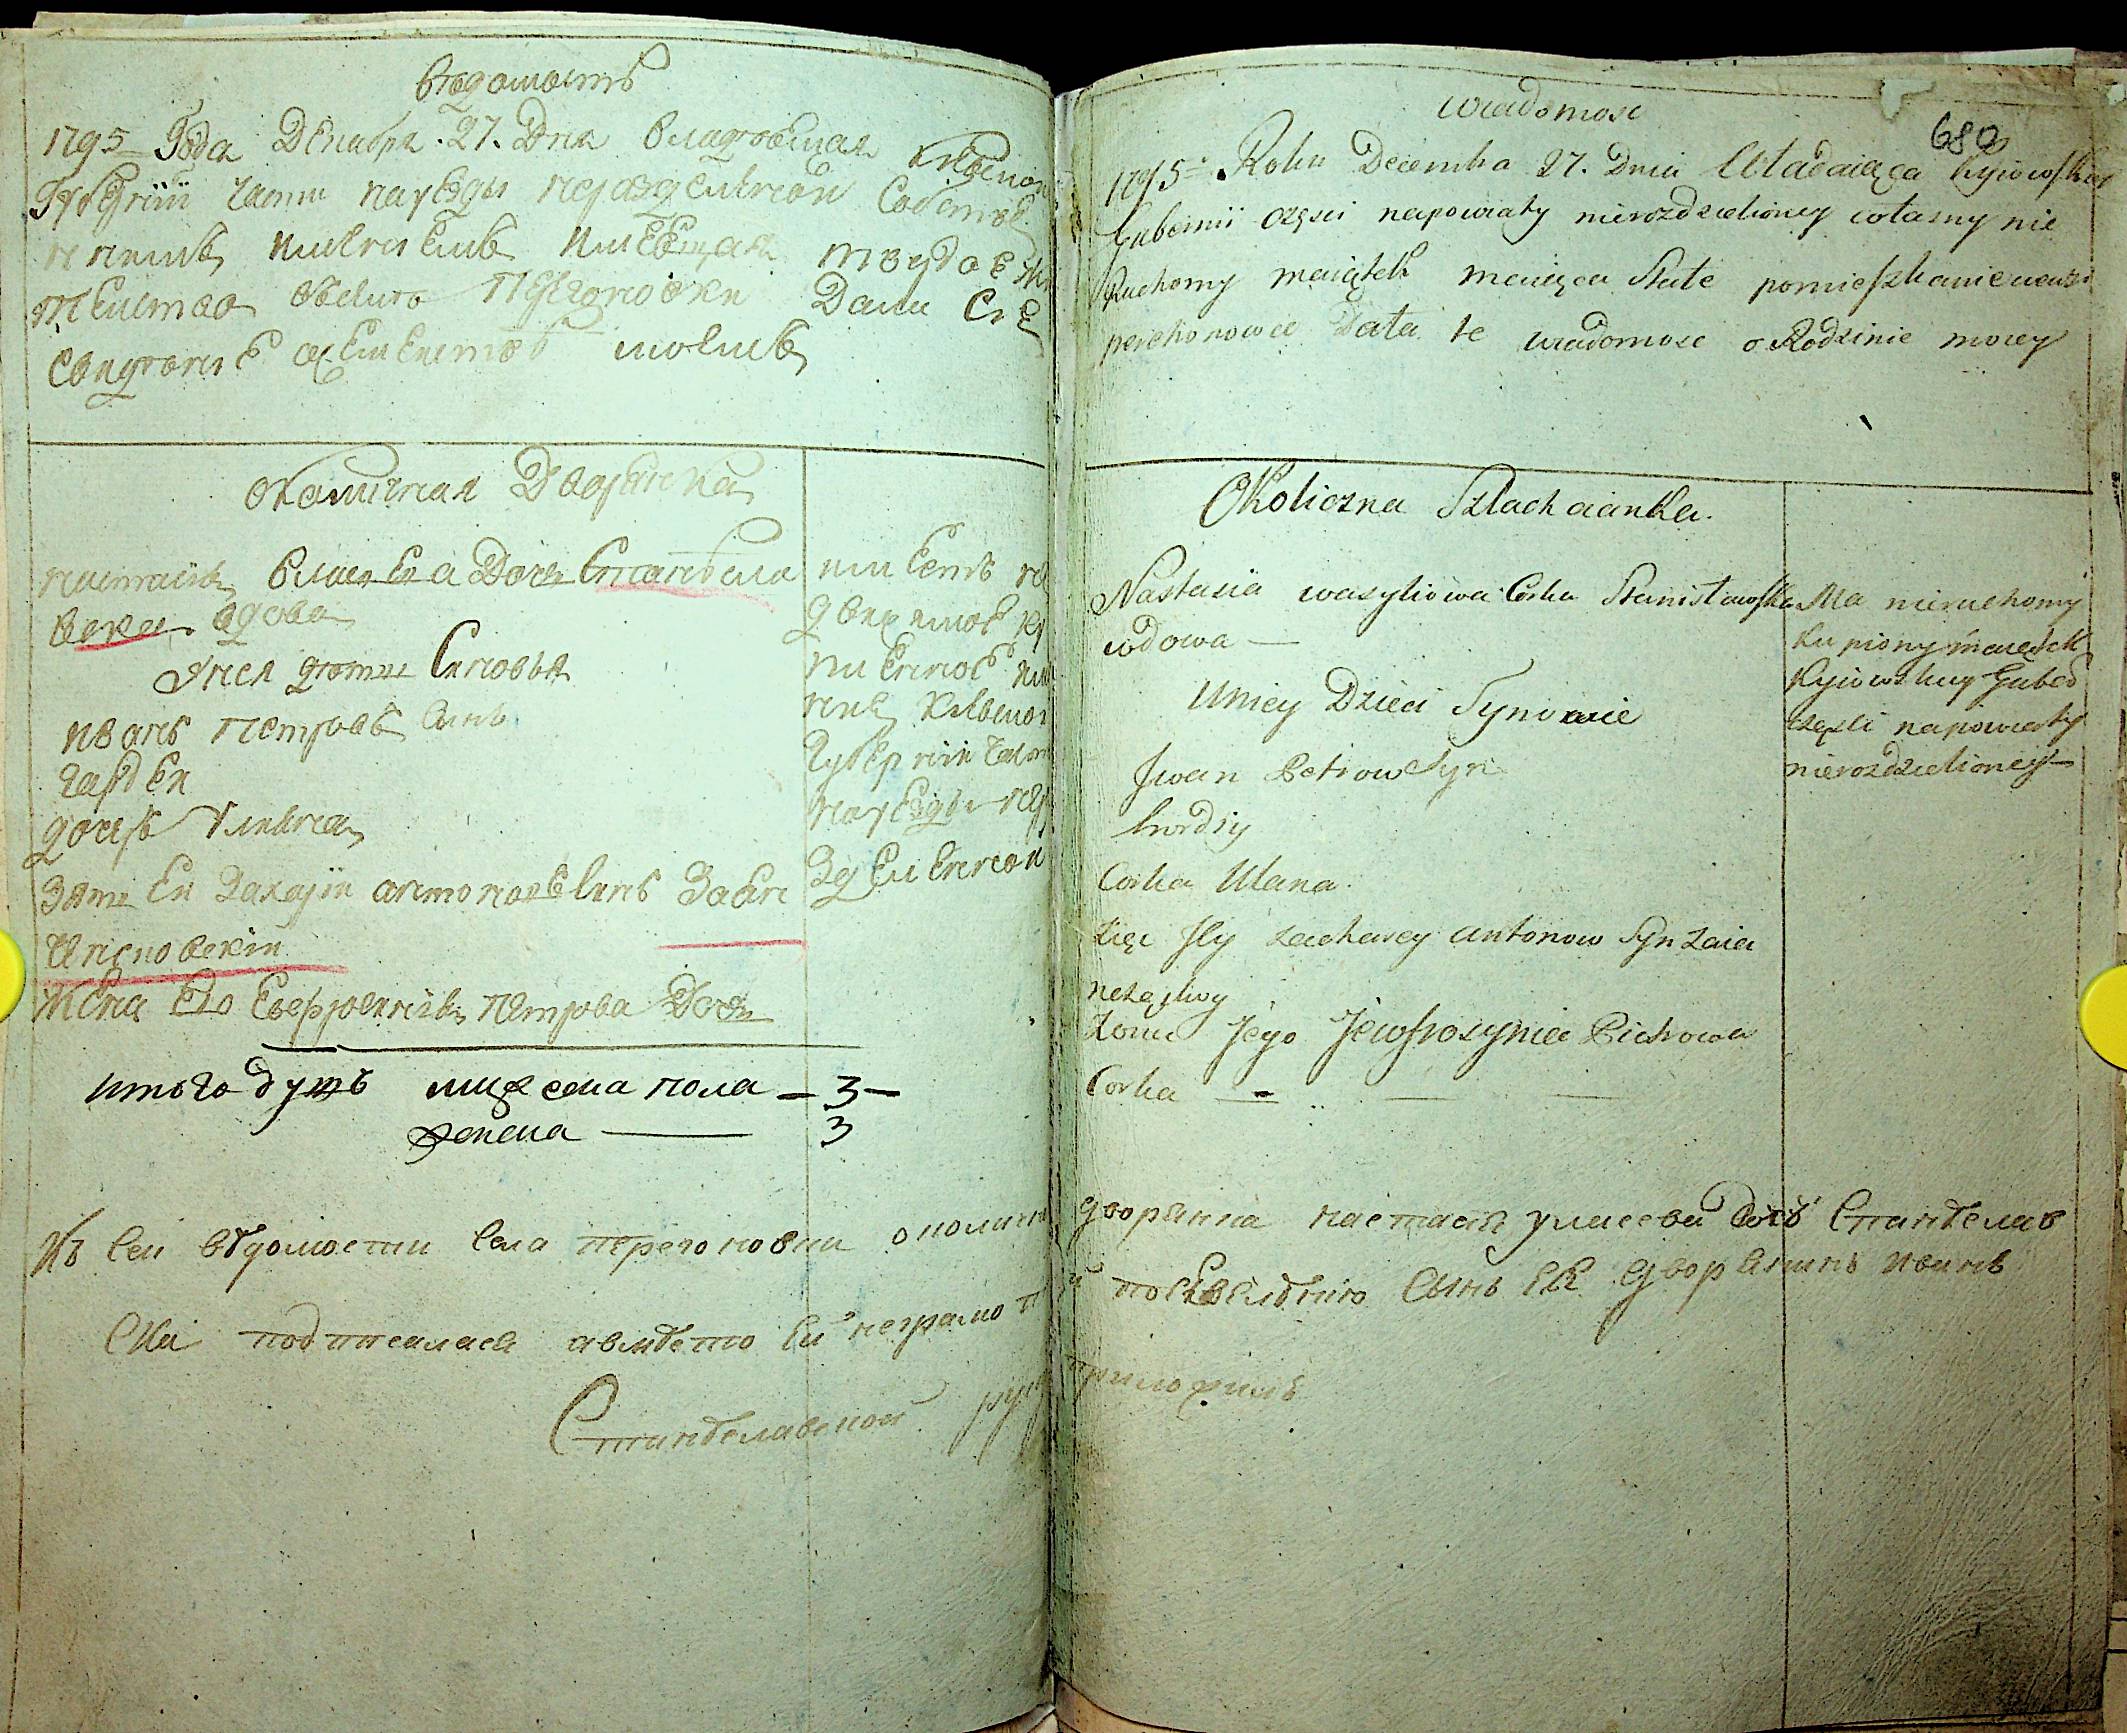 вѣдомость
1795 Года Декабря 27. Дня владѣющая Кіевской
Губерніи части науезды неразделенной Собствен
имѣющая
села Перегоновки Дана Сія
моемъ
околичная Дворянка
настасія Дочь Станисла
вска вдова
Унея дѣти Сыновья
иванъ Петровъ Сынъ
гардей
дочерь Уляна
Зять Ея Захарій антоновъ Сынъ Заян
чисповскій
Жена Его Евфросинія Петрова Дочь
имеетъ не
движимое ку
пленное име
ніе Кіевской
Губерніи части
науезды нера
зделенной
итого душъ мужеска пола — 3 —
женска — 3
Къ сей вѣдомости села перегоновки околична
подписалася авмѣсто Ея неграмотн
Станѣславской руку
wiadomosc
680
1795 Roku Decembra 27. Dnia Władaiąca kyiowskiey
Gubernii części napowiaty nierozdzieloney własny nie
Ruchomy maiątek maiąca Stałe pomieszkanie wewsi
perehonowce Data te wiadomosc o Rodzinie moiey
Okoliczna Szlachcianka.
Nastasia wasyliowa Corka Stanisławska
wdowa —
Uniey Dzieci Synowie
Jwan Petrow Syn
hordiy
Corka Ulana
Zięc Jey zacharey antonow Syn Zaia
Zona Jego Jewfrosynia Pietrowa
Corka —
Ma nieruchomy
kupiony maiątek
Kyiowskiey Guber
częsci napowiaty
nierozdzieloney
дворянка настасія улисева дочь Станѣслав
й повѣленію сынъ ея дворянинъ иванъ
приложилъ